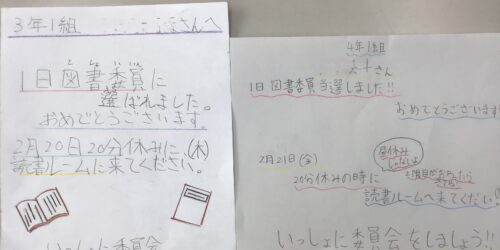 3年1組 さんへ
1日図書委員に
選ばれました。
おめでとうございます。
2月20日20分休みに、(木)
読書ルームに来てください。
いっしょに委員会
4年1組
さん
1日図書委員当選しました!!
おめでとうございます!
2月21日(金)
昼休み
20分休みの時に
読書ルームへ来てください!!
いっしょに委員会をしましょう!!